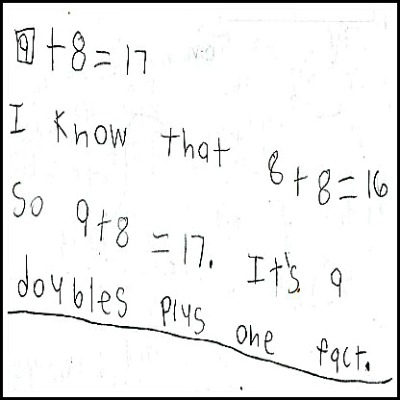 9 + 8 = 17
I know that 8 + 8 = 16
So 9 + 8 = 17. It's a
doubles plus one fact.